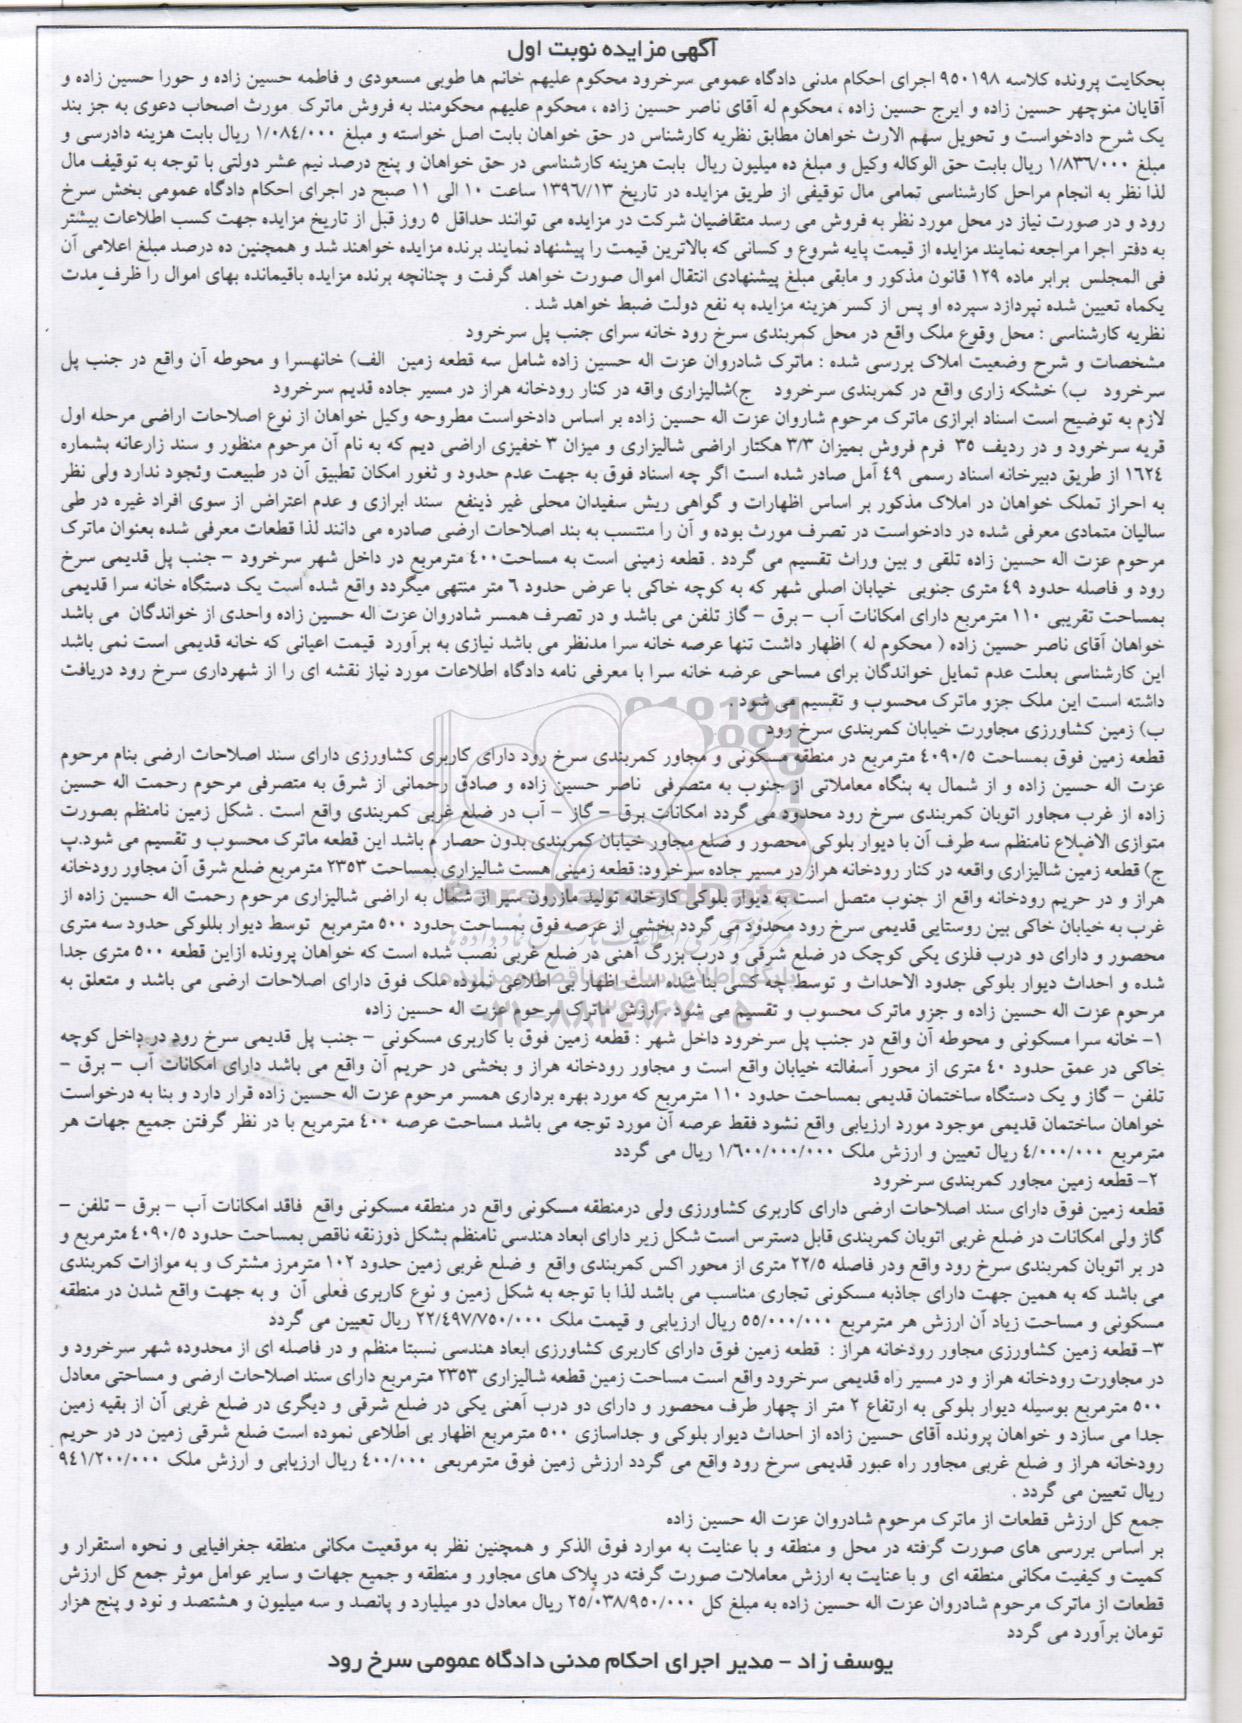 آگهی مزایده نوبت اول
بحکایت پرونده کلاسه ۹۵۰۱۹۸ اجرای احکام مدنی دادگاه عمومی سرخرود محکوم علیهم خانم ها طوبی مسعودی و فاطمه حسین زاده و حورا حسین زاده و
آقایان منوچهر حسین زاده و ایرج حسین زاده ، محکوم له آقای ناصر حسین زاده ، محکوم علیهم محکومند به فروش ماترک مورث اصحاب دعوی به جز بند
یک شرح دادخواست و تحویل سهم الارث خواهان مطابق نظریه کارشناس در حق خواهان بابت اصل خواسته و مبلغ ۱/۰۸۴/۰۰۰ ریال بابت هزینه دادرسی و
مبلغ ۱/۸۳۶/۰۰۰ ریال بابت حق الوکاله وکیل و مبلغ ده میلیون ریال بابت هزینه کارشناسی در حق خواهان و پنج درصد نیم عشر دولتی با توجه به توقیف مال
لذا نظر به انجام مراحل کارشناسی تمامی مال توقیفی از طریق مزایده در تاریخ ۱۳۹۶//۱۳ ساعت ۱۰ الی ۱۱ صبح در اجرای احکام دادگاه عمومی بخش سرخ
رود و در صورت نیاز در محل مورد نظر به فروش می رسد متقاضیان شرکت در مزایده می توانند حداقل ۵ روز قبل از تاریخ مزایده جهت کسب اطلاعات بیشتر
به دفتر اجرا مراجعه نمایند مزایده از قیمت پایه شروع و کسانی که بالاترین قیمت را پیشنهاد نمایند برنده مزایده خواهند شد و همچنین ده درصد مبلغ اعلامی آن
فی المجلس برابر ماده ۱۲۹ قانون مذکور و مابقی مبلغ پیشنهادی انتقال اموال صورت خواهد گرفت و چنانچه برنده مزایده باقیمانده بهای اموال را ظرف مدت
یکماه تعیین شده نپردازد سپرده او پس از کسر هزینه مزایده به نفع دولت ضبط خواهد شد .
نظریه کارشناسی : محل وقوع ملک واقع در محل کمربندی سرخ رود خانه سرای جنب پل سرخرود
مشخصات و شرح وضعیت املاک بررسی شده : ماترک شادروان عزت اله حسین زاده شامل سه قطعه زمین الف) خانهسرا و محوطه آن واقع در جنب پل
سرخرود ب) خشکه زاری واقع در کمربندی سرخرود ج)شالیزاری واقه در کنار رودخانه هراز در مسیر جاده قدیم سرخرود
لازم به توضیح است اسناد ابرازی ماترک مرحوم شاروان عزت اله حسین زاده بر اساس دادخواست مطروحه وکیل خواهان از نوع اصلاحات اراضی مرحله اول
قریه سرخرود و در ردیف ۳۵ فرم فروش بمیزان ۳/۳ هکتار اراضی شالیزاری و میزان ۳ خفیزی اراضی دیم که به نام آن مرحوم منظور و سند زارعانه بشماره
۱۶۲۴ از طریق دبیرخانه اسناد رسمی ۴۹ آمل صادر شده است اگر چه اسناد فوق به جهت عدم حدود و ثغور امکان تطبیق آن در طبیعت وئجود ندارد ولی نظر
به احراز تملک خواهان در املاک مذکور بر اساس اظهارات و گواهی ریش سفیدان محلی غیر ذینفع سند ابرازی و عدم اعتراض از سوی افراد غیره در طی
سالیان متمادی معرفی شده در دادخواست در تصرف مورث بوده و آن را منتسب به بند اصلاحات ارضی صادره می دانند لذا قطعات معرفی شده بعنوان ماترک
مرحوم عزت اله حسین زاده تلقی و بین وراث تقسیم می گردد . قطعه زمینی است به مساحت ۴۰۰ مترمربع در داخل شهر سرخرود – جنب پل قدیمی سرخ
رود و فاصله حدود ۴۹ متری جنوبی خیابان اصلی شهر که به کوچه خاکی با عرض حدود ۶ متر منتهی میگردد واقع شده است یک دستگاه خانه سرا قدیمی
بمساحت تقریبی ۱۱۰ مترمربع دارای امکانات آب – برق – گاز تلفن می باشد و در تصرف همسر شادروان عزت اله حسین زاده واحدی از خواندگان می باشد
خواهان آقای ناصر حسین زاده ( محکوم له ) اظهار داشت تنها عرصه خانه سرا مدنظر می باشد نیازی به برآورد قیمت اعیانی که خانه قدیمی است نمی باشد
این کارشناسی بعلت عدم تمایل خواندگان برای مساحی عرضه خانه سرا با معرفی نامه دادگاه اطلاعات مورد نیاز نقشه ای را از شهرداری سرخ رود دریافت
داشته است این ملک جزو ماترک محسوب و تقسیم می شود .
ب) زمین کشاورزی مجاورت خیابان کمربندی سرخ رود
قطعه زمین فوق بمساحت ۴۰۹۰/۵ مترمربع در منطقه مسکونی و مجاور کمربندی سرخ رود دارای کاربری کشاورزی دارای سند اصلاحات ارضی بنام مرحوم
عزت اله حسین زاده و از شمال به بنگاه معاملاتی از جنوب به متصرفی ناصر حسین زاده و صادق رحمانی از شرق به متصرفی مرحوم رحمت اله حسین
زاده از غرب مجاور اتوبان کمربندی سرخ رود محدود می گردد امکانات برق – گاز – آب در ضلع غربی کمربندی واقع است . شکل زمین نامنظم بصورت
متوازی الاضلاع نامنظم سه طرف آن با دیوار بلوکی محصور و ضلع مجاور خیابان کمربندی بدون حصار م باشد این قطعه ماترک محسوب و تقسیم می شود.پ
ج) قطعه زمین شالیزاری واقعه در کنار رودخانه هراز در مسیر جاده سرخرود: قطعه زمینی هست شالیزاری بمساحت ۲۳۵۳ مترمربع ضلع شرق آن مجاور رودخانه
هراز و در حریم رودخانه واقع از جنوب متصل است به دیوار بلوکی کارخانه تولید مازرون سیر از شمال به اراضی شالیزاری مرحوم رحمت اله حسین زاده از
غرب به خیابان خاکی بین روستایی قدیمی سرخ رود محدود می گردد بخشی از عرصه فوق بمساحت حدود ۵۰۰ مترمربع توسط دیوار بللوکی حدود سه متری
محصور و دارای دو درب فلزی یکی کوچک در ضلع شرقی و درب بزرگ آهنی در ضلع غربی نصب شده است که خواهان پرونده ازاین قطعه ۵۰۰ متری جدا
شده و احداث دیوار بلوکی جدود الاحداث و توسط چه کسی بنا شده است اظهار بی اطلاعی نموده ملک فوق دارای اصلاحات ارضی می باشد و متعلق به
مرحوم عزت اله حسین زاده و جزو ماترک محسوب و تقسیم می شود . ارزش ماترک مرحوم عزت اله حسین زاده
۱- خانه سرا مسکونی و محوطه آن واقع در جنب پل سرخرود داخل شهر : قطعه زمین فوق با کاربری مسکونی – جنب پل قدیمی سرخ رود در داخل کوچه
خاکی در عمق حدود ۴۰ متری از محور آسفالته خیابان واقع است و مجاور رودخانه هراز و بخشی در حریم آن واقع می باشد دارای امکانات آب – برق –
تلفن – گاز و یک دستگاه ساختمان قدیمی بمساحت حدود ۱۱۰ مترمربع که مورد بهره برداری همسر مرحوم عزت اله حسین زاده قرار دارد و بنا به درخواست
خواهان ساختمان قدیمی موجود مورد ارزیابی واقع نشود فقط عرصه آن مورد توجه می باشد مساحت عرصه ۴۰۰ مترمربع با در نظر گرفتن جمیع جهات هر
مترمربع ۴/۰۰۰/۰۰۰ ریال تعیین و ارزش ملک ۱/۶۰۰/۰۰۰/۰۰۰ ریال می گردد
۲- قطعه زمین مجاور کمربندی سرخرود
قطعه زمین فوق دارای سند اصلاحات ارضی دارای کاربری کشاورزی ولی درمنطقه مسکونی واقع در منطقه مسکونی واقع فاقد امکانات آب – برق – تلفن –
گاز ولی امکانات در ضلع غربی اتوبان کمربندی قابل دسترس است شکل زیر دارای ابعاد هندسی نامنظم بشکل ذوزنقه ناقص بمساحت حدود ۴۰۹۰/۵ مترمربع و
در بر اتوبان کمربندی سرخ رود واقع ودر فاصله ۲۲/۵ متری از محور اکس کمربندی واقع و ضلع غربی زمین حدود ۱۰۲ مترمرز مشترک و به موازات کمربندی
می باشد که به همین جهت دارای جاذبه مسکونی تجاری مناسب می باشد لذا با توجه به شکل زمین و نوع کاربری فعلی آن و به جهت واقع شدن در منطقه
مسکونی و مساحت زیاد آن ارزش هر مترمربع ۵۵/۰۰۰/۰۰۰ ریال ارزیابی و قیمت ملک ۲۲/۴۹۷/۷۵۰/۰۰۰ ریال تعیین می گردد
۳- قطعه زمین کشاورزی مجاور رودخانه هراز : قطعه زمین فوق دارای کاربری کشاورزی ابعاد هندسی نسبتا منظم و در فاصله ای از محدوده شهر سرخرود و
در مجاورت رودخانه هراز و در مسیر راه قدیمی سرخرود واقع است مساحت زمین قطعه شالیزاری ۲۳۵۳ مترمربع دارای سند اصلاحات ارضی و مساحتی معادل
۵۰۰ مترمربع بوسیله دیوار بلوکی به ارتفاع ۲ متر از چهار طرف محصور و دارای دو درب آهنی یکی در ضلع شرقی و دیگری در ضلع غربی آن از بقیه زمین
جدا می سازد و خواهان پرونده آقای حسین زاده از احداث دیوار بلوکی و جداسازی ۵۰۰ مترمربع اظهار بی اطلاعی نموده است ضلع شرقی زمین در در حریم
رودخانه هراز و ضلع غربی مجاور راه عبور قدیمی سرخ رود واقع می گردد ارزش زمین فوق مترمربعی ۴۰۰/۰۰۰ ریال ارزیابی و ارزش ملک ۹۴۱/۲۰۰/۰۰۰
ریال تعیین می گردد .
جمع کل ارزش قطعات از ماترک مرحوم شادروان عزت اله حسین زاده
بر اساس بررسی های صورت گرفته در محل و منطقه و با عنایت به موارد فوق الذکر و همچنین نظر به موقعیت مکانی منطقه جغرافیایی و نحوه استقرار و
کمیت و کیفیت مکانی منطقه ای و با عنایت به ارزش معاملات صورت گرفته در پلاک های مجاور و منطقه و جمیع جهات و سایر عوامل موثر جمع کل ارزش
قطعات از ماترک مرحوم شادروان عزت اله حسین زاده به مبلغ کل ۲۵/۰۳۸/۹۵۰/۰۰۰ ریال معادل دو میلیارد و پانصد و سه میلیون و هشتصد و نود و پنج هزار
تومان برآورد می گردد
یوسف زاد – مدیر اجرای احکام مدنی دادگاه عمومی سرخ رود